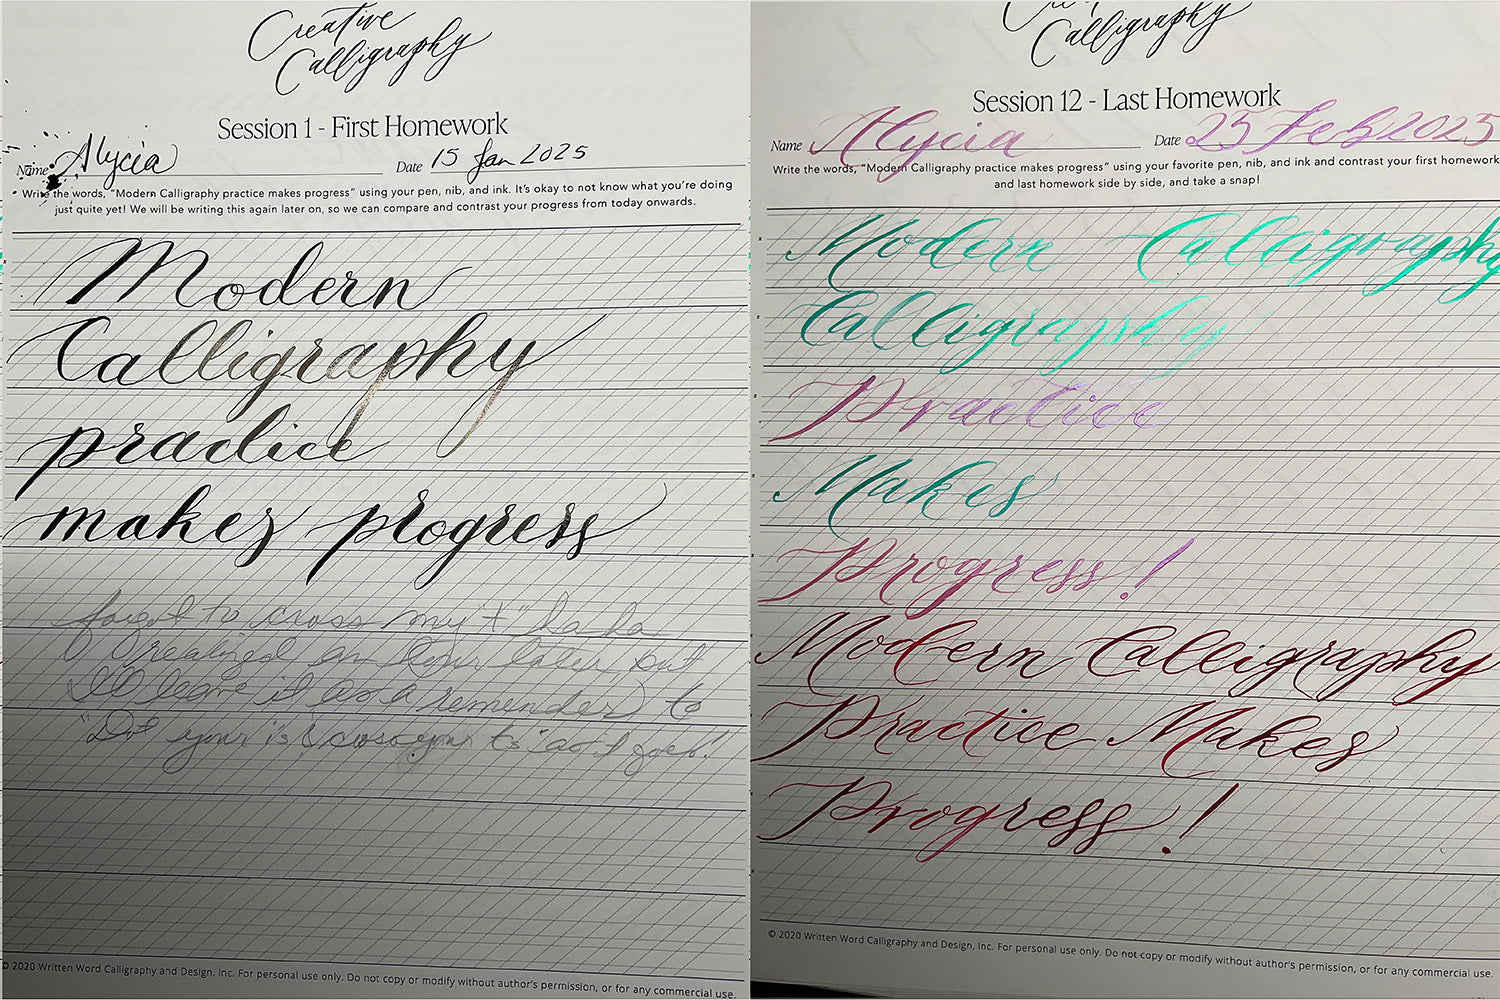 Creative
Calligraphy
Session 1 - First Homework
Name Alycia Date 15 Jan 2025
Write the words, "Modern Calligraphy practice makes progress" using your pen, nib, and ink. It's okay to not know what you're doing
just quite yet! We will be writing this again later on, so we can compare and contrast your progress from today onwards.
Modern
Calligraphy
practice
makes progress
forgot to cross my "t" haha
I realized an hour later but
I'll leave it as a reminder to
"Dot your i's & cross your ts" as I goes!
© 2020 Written Word Calligraphy and Design, Inc. For personal use only. Do not copy or modify without author's permission, or for any commercial use.
Creative
Calligraphy
Session 12 - Last Homework
Name Alycia Date 25 Feb 2025
Write the words, "Modern Calligraphy practice makes progress" using your favorite pen, nib, and ink and contrast your first homework
and last homework side by side, and take a snap!
Modern Calligraphy
Calligraphy
Practice
Makes
Progress!
Modern Calligraphy
Practice Makes
Progress!
© 2020 Written Word Calligraphy and Design, Inc. For personal use only. Do not copy or modify without author's permission, or for any commercial use.